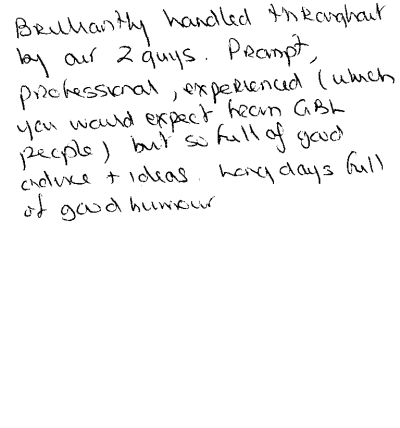 Brilliantly handled throughout
by our 2 guys. Prompt,
professional, experienced (which
you would expect from GBL
people) but so full of good
advice + ideas. Long days full
of good humour